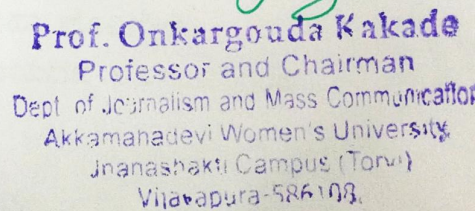 Prof. Onkargouda Kakade
Professor and Chairman
Dept of Journalism and Mass Communication
Akkamahadevi Women's University
Jnanashakti Campus (Torvi)
Vijayapura-586108.